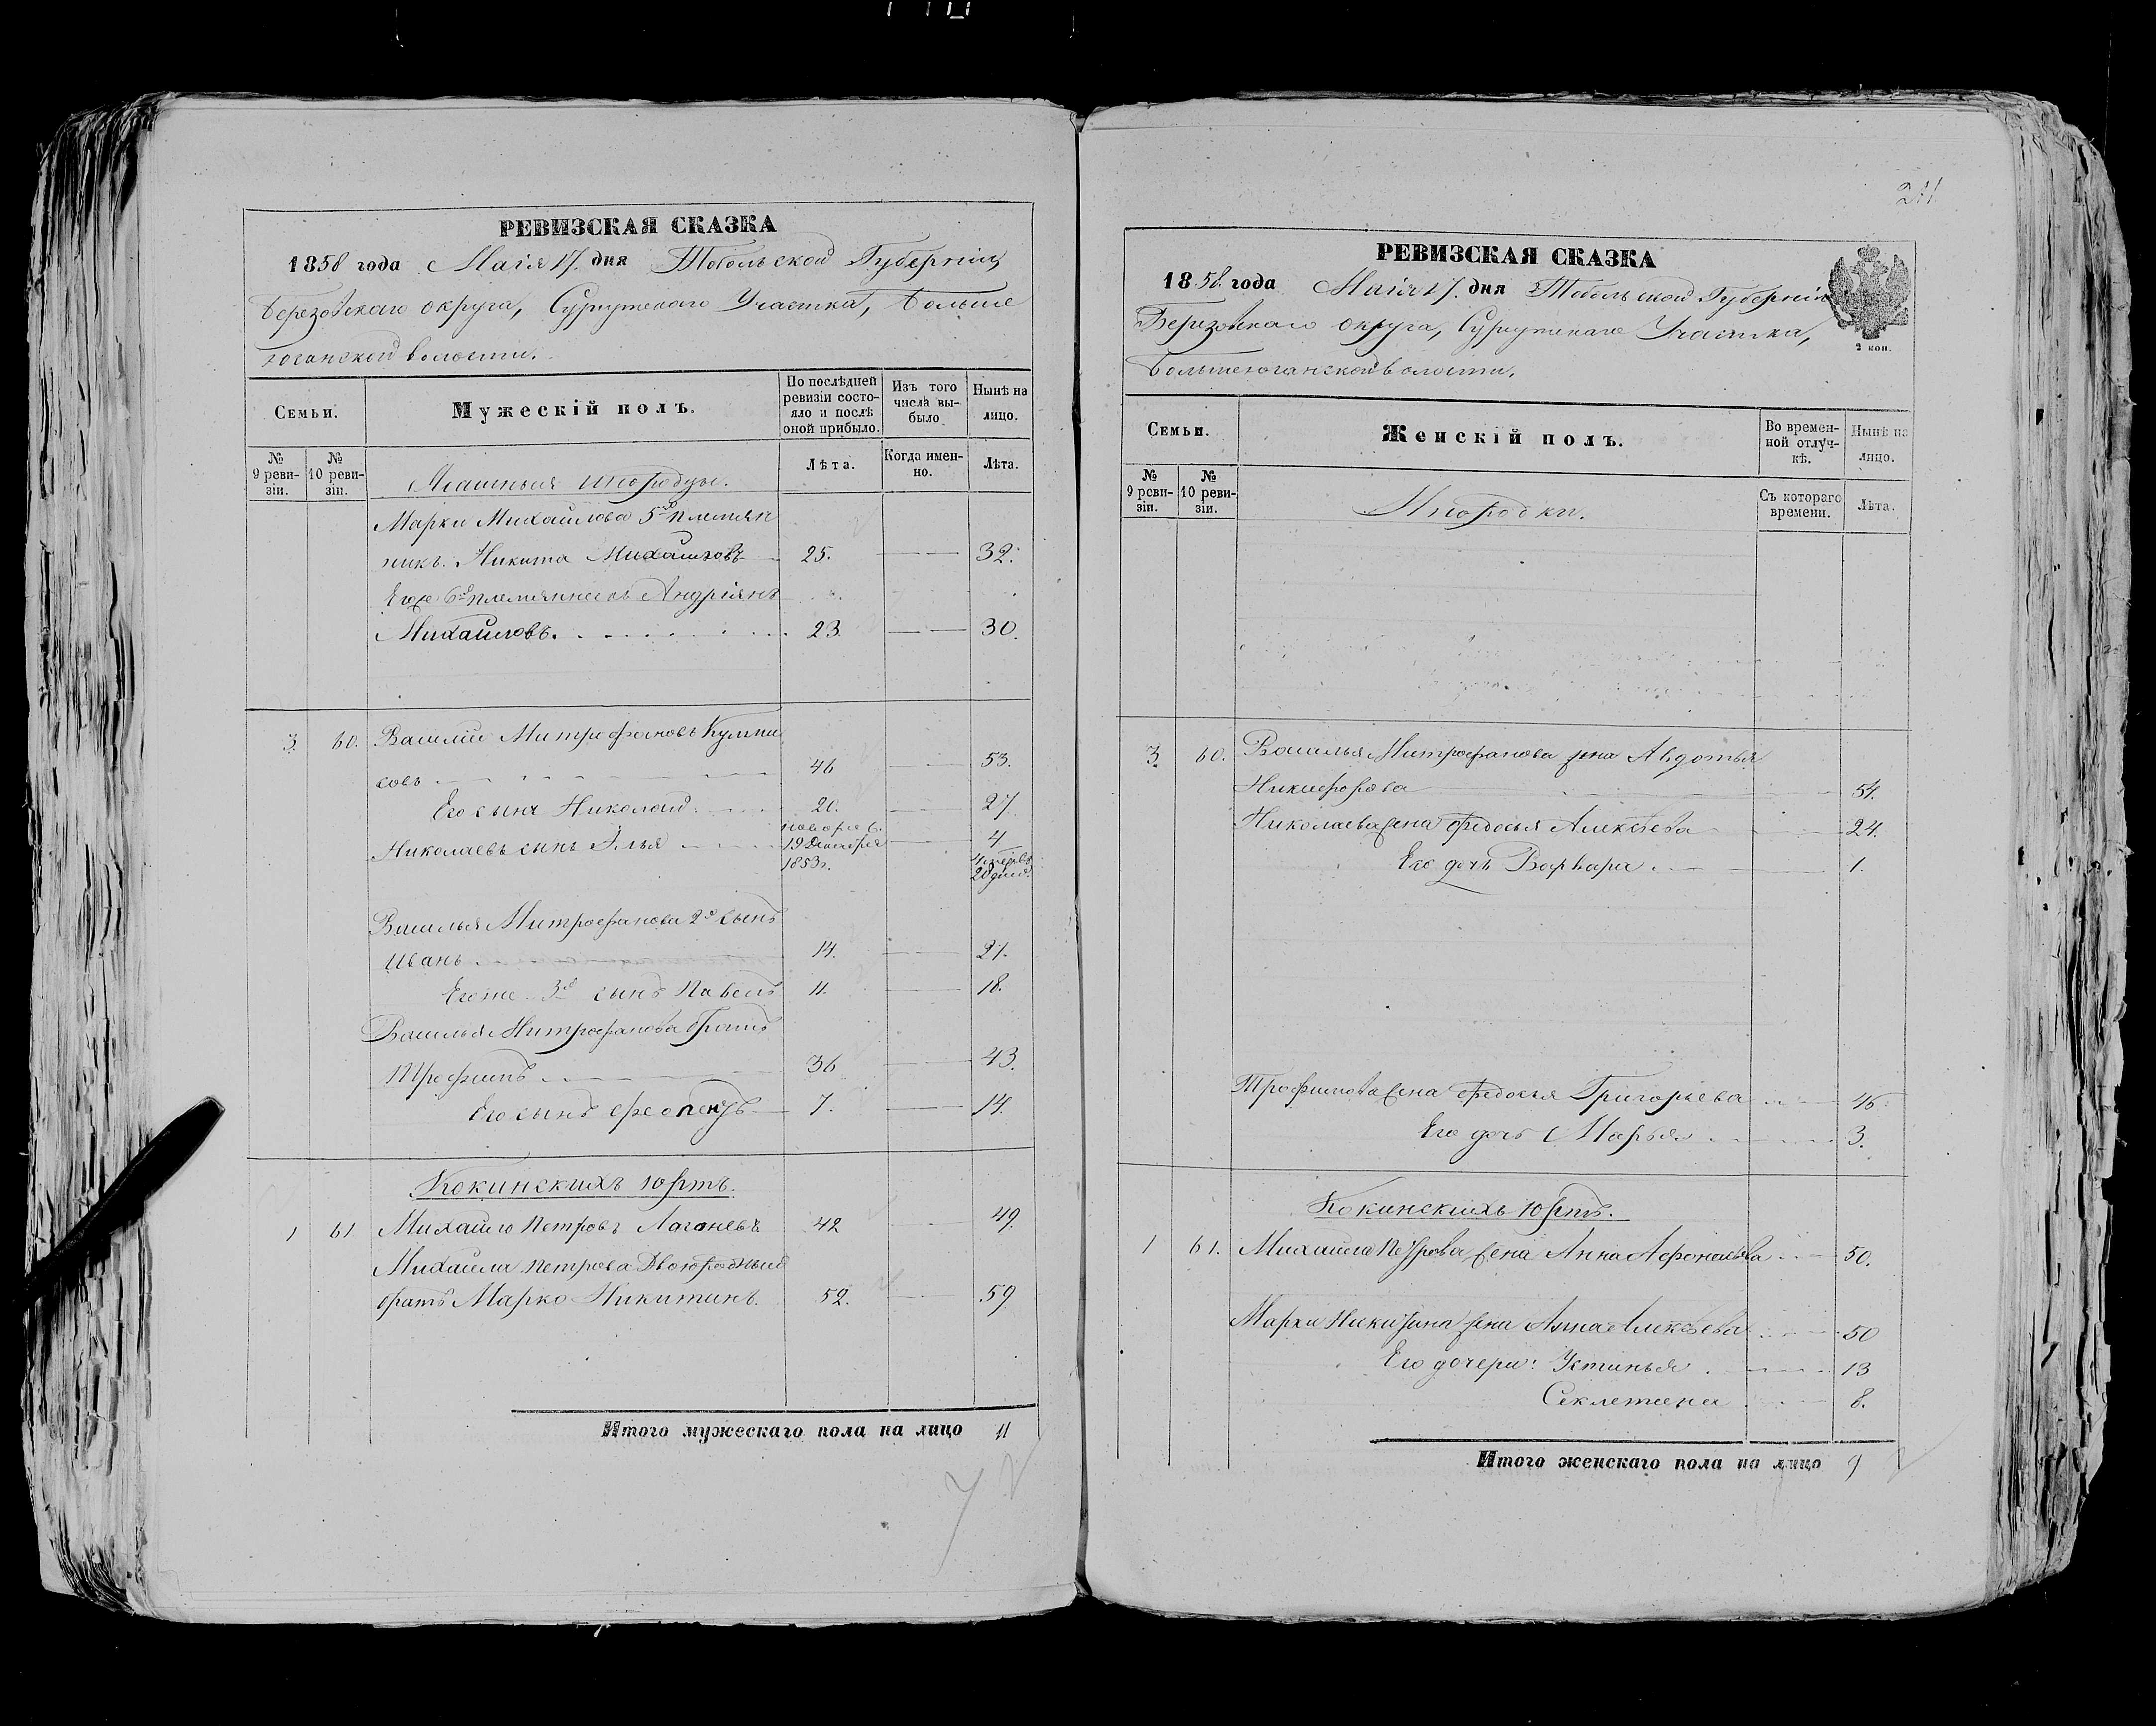 211
РЕВИЗСКАЯ СКАЗКА
1858 года Маія 17. дня Тобольской Губерніи,
Березовскаго округа, Сургутскаго Участка, Больше
юганской волости.
Семьи.
Мужескій полъ.
По послѣдней
ревизіи состо-
яло и послѣ
оной прибыло.
Изъ того
числа вы-
было
Нынѣ на
лицо.
№
9 реви-
зіи.
№
10 реви-
зіи.
Ясашныя инородцы.
Лѣта.
Когда имен-
но.
Лѣта.
Марки Михайлова 5й племян
никъ. Никита Михайловъ 25. 32.
Егоже 6й племянникъ Андріянъ
Михайловъ. 23. 30.
3. 60. Василій Митрофановъ
совъ 46 53.
Его сынъ Николай 20. 27
Николаевъ сынъ Илья 4
19 Декабря
1853г.
Василья Митрофанова 2й сынъ
Иванъ 14. 21.
Егоже 3й сынъ Павелъ 11. 18.
Василья Митрофанова братъ
Трофимъ 36 43.
Его сынъ 7. 14.
Кокинскихъ юртъ.
1 61 Михайло Петровъ Лагоневъ 42 49.
Михайла Петрова Двоюродный
братъ Марко Никитинъ. 52. 59
Итого мужескаго пола на лицо 11
РЕВИЗСКАЯ СКАЗКА
1858 года Маія 17. дня Тобольской Губерніи
Березовскаго округа, Сургутскаго Участка,
Большеюганской волости.
2 коп.
Семьи.
Женскій полъ.
Во времен-
ной отлуч-
кѣ.
Нынѣ на
лицо.
№
9 реви-
зіи.
№
10 реви-
зіи.
Инородки.
Съ котораго
времени.
Лѣта.
3. 60. Василья Митрофанова жена Авдотья
Никифорова 54.
Николаева жена Федосья Алексѣева 24.
Его дочь Варвара 1.
Трофимова жена Федосья Григорьева 45.
Его дочь Марья 3.
Кокинскихъ юртъ.
1 61. Михайла Петрова жена Анна Афонасьева 50.
Марки Никитина жена Анна Алексѣева 50
Его дочери: Устинья 13
Секлетина 8.
Итого женскаго пола на лицо 9